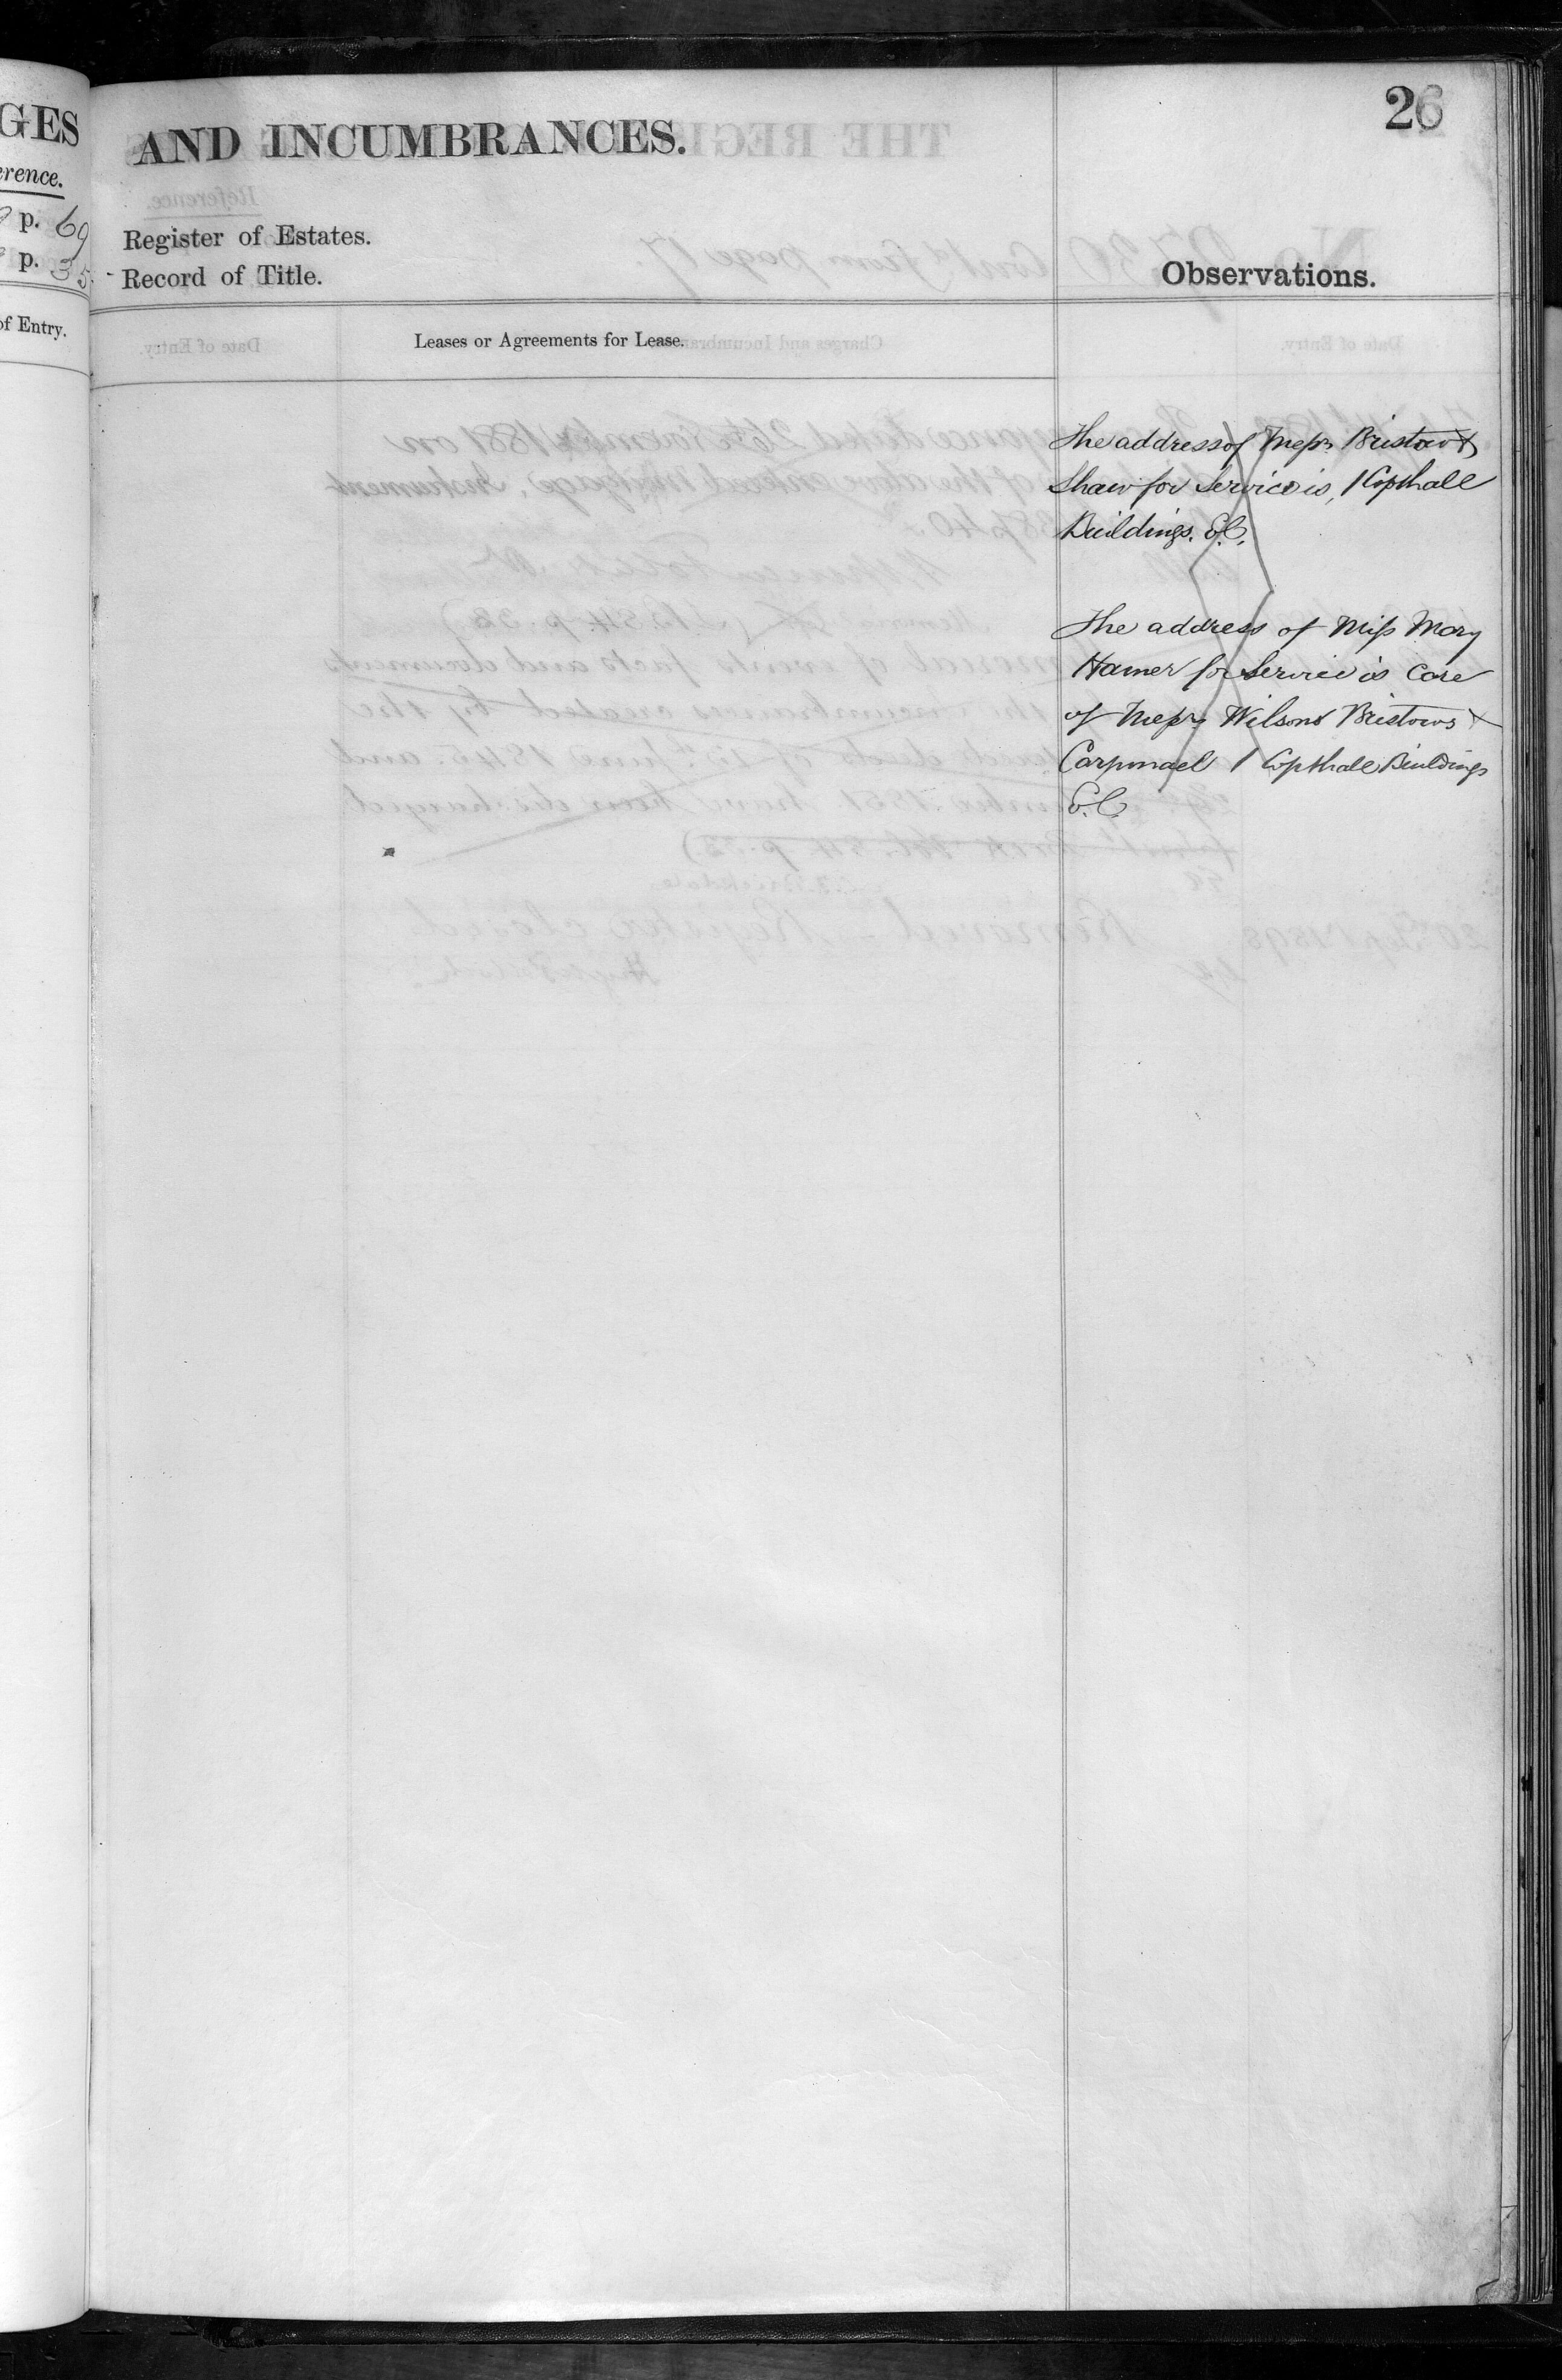 GES
erence.
p. 69
p. 35
of Entry.
AND INCUMBRANCES.
26
Register of Estates.
Record of Title.
Observations.
Leases or Agreements for Lease.
The address of Messrs Bristow &
Shaw for Service is, 1 Copthall
Buildings. E.C.
The address of Miss Mary
Hamer for Service is Care
of Messrs Wilsons Bristows &
Carpmael 1 Copthall Buildings
E.C.